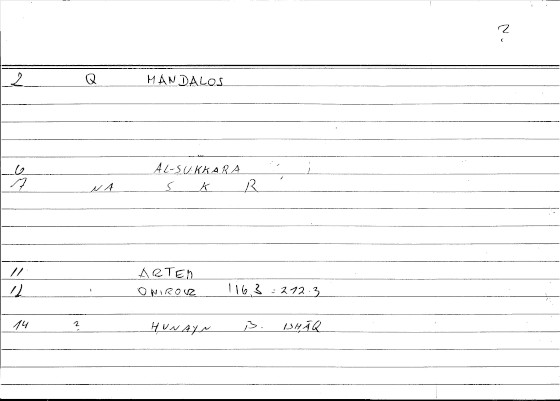 ?
2 Q MANDALOS
6 AL-SUKKARA
7 NA S K R
11 ARTEM
12 ONIROCR 116,3 = 212.3
14 ? HUNAYN B. ISHĀQ